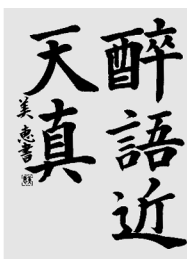 醉語近
天真
美恵書